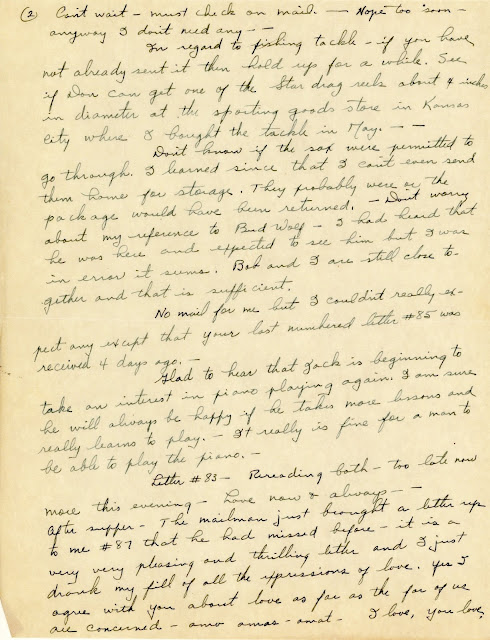 (2) Can't wait - must check on mail. — Nope too soon -
anyway I don't need any - -
In regard to fishing tackle - if you have
not already sent it then hold up for a while. See
if Don can get one of the Star drag reels about 4 inches
in diameter at the sporting goods store in Kansas
City where I bought the tackle in May. - -
Don't know if the sox were permitted to
go through. I learned since that I can't even send
them home for storage. They probably were or the
package would have been returned. - Don't worry
about my reference to Bud Wolf - I had heard that
he was here and expected to see him but I was
in error it seems. Bob and I are still close to-
gether and that is sufficient.
No mail for me but I couldn't really ex-
pect any except that your last numbered letter #85 was
received 4 days ago. -
Glad to hear that Jack is beginning to
take an interest in piano playing again. I am sure
he will always be happy if he takes more lessons and
really learns to play. - It really is fine for a man to
be able to play the piano. -
Letter #83 - Rereading both - too late now
more this evening - Love now & always - -
After supper - The mailman just brought a letter up
to me #87 that he had missed before - it is a
very very pleasing and thrilling letter and I just
drank my fill of all the expressions of love. Yes I
agree with you about love as far as the far of us
are concerned - amo amas - amat. I love, you love,